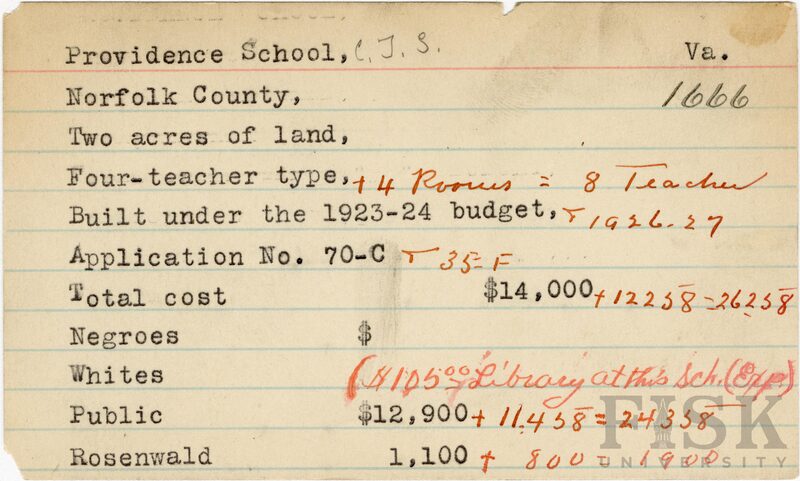 Providence School, C.T.S. Va.
Norfolk County, 1666
Two acres of land,
Four-teacher type, + 4 Rooms = 8 Teacher
Built under the 1923-24 budget, + 1926-27
Application No. 70-C + 35-F
Total cost $14,000 + 12258 = 26258
Negroes $
Whites ($105.00 Library at this Sch. (Exp.)
Public $12,900 + 11,458 = 24358
Rosenwald 1,100 + 800 = 1900
FISK
UNIVERSITY